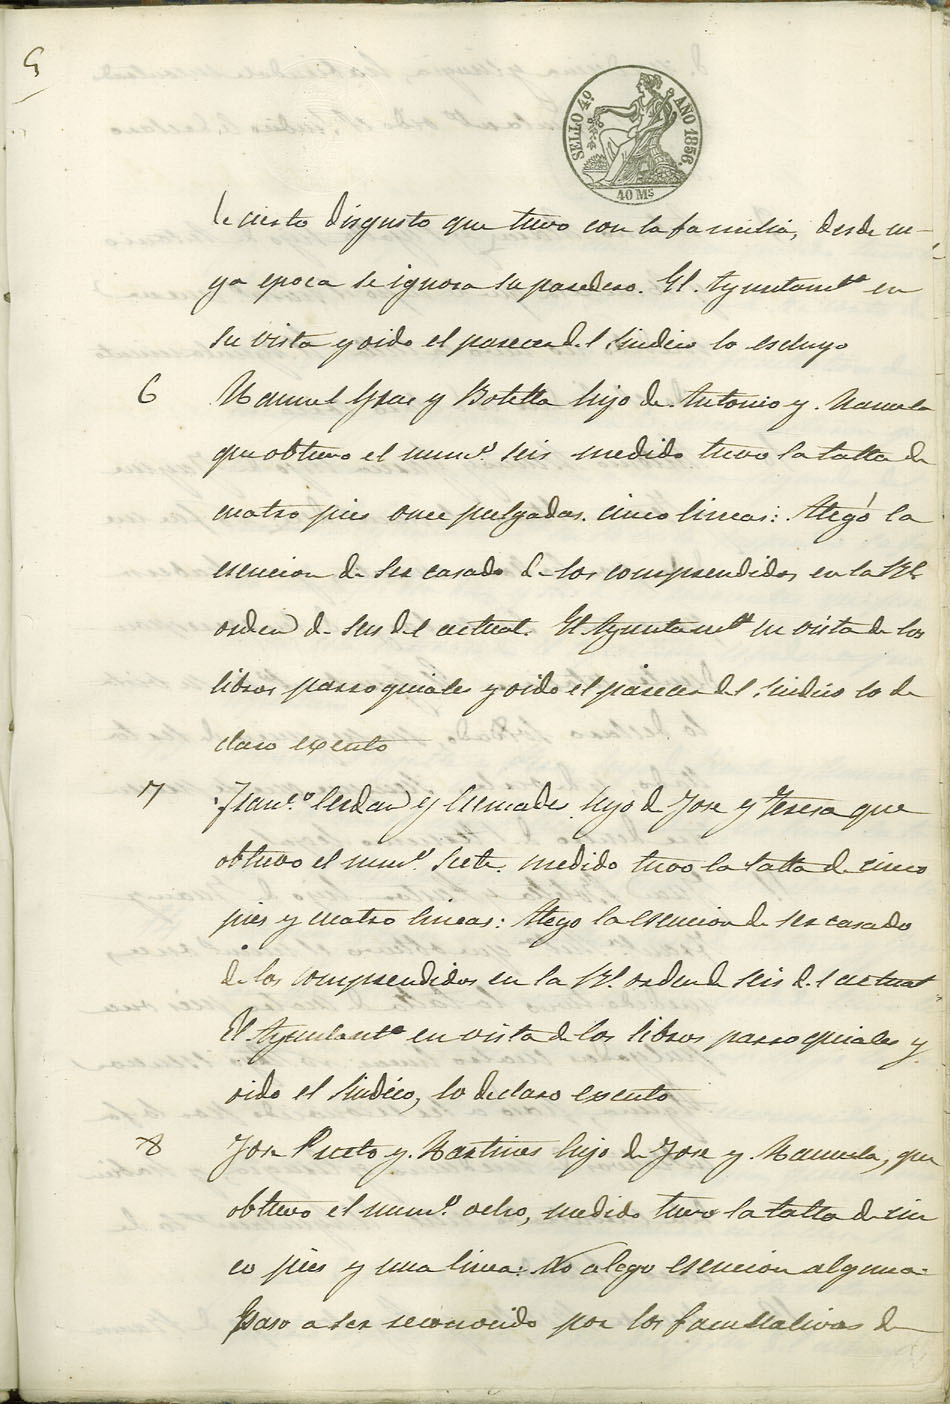 5
SELLO 4º AÑO 1856.
40 Ms
de cierto disgusto que tuvo con la familia, desde cu-
ya epoca se ignora su paradero. El Ayuntamto en
su vista y oido el parecer del Sindico lo escluyo
6 Manuel y Botella hijo de Antonio y Manuela
que obtuvo el numo. seis medido tuvo la talla de
cuatro pies once pulgadas cinco lineas: Alegó la
esencion de ser casado de los comprendidos en la Rl
orden de seis del actual. El Ayuntamto en vista de los
libros parroquiales y oido el parecer del Sindico lo de
claro exento
7 Franco Cerdan y hijo de Jose y Teresa que
obtuvo el numo. siete medido tuvo la talla de cinco
pies y cuatro lineas: Alego la esencion de ser casado
de los comprendidos en la Rl. orden de seis del actual
El Ayuntamto en vista de los libros parroquiales y
oido el Sindico, lo declaro exento
8 Jose Prieto y Martines hijo de Jose y Manuela, que
obtuvo el numo. ocho, medido tuvo la talla de cin
co pies y una linea: No alego esencion alguna:
Paso a ser reconocido por los facultativos de